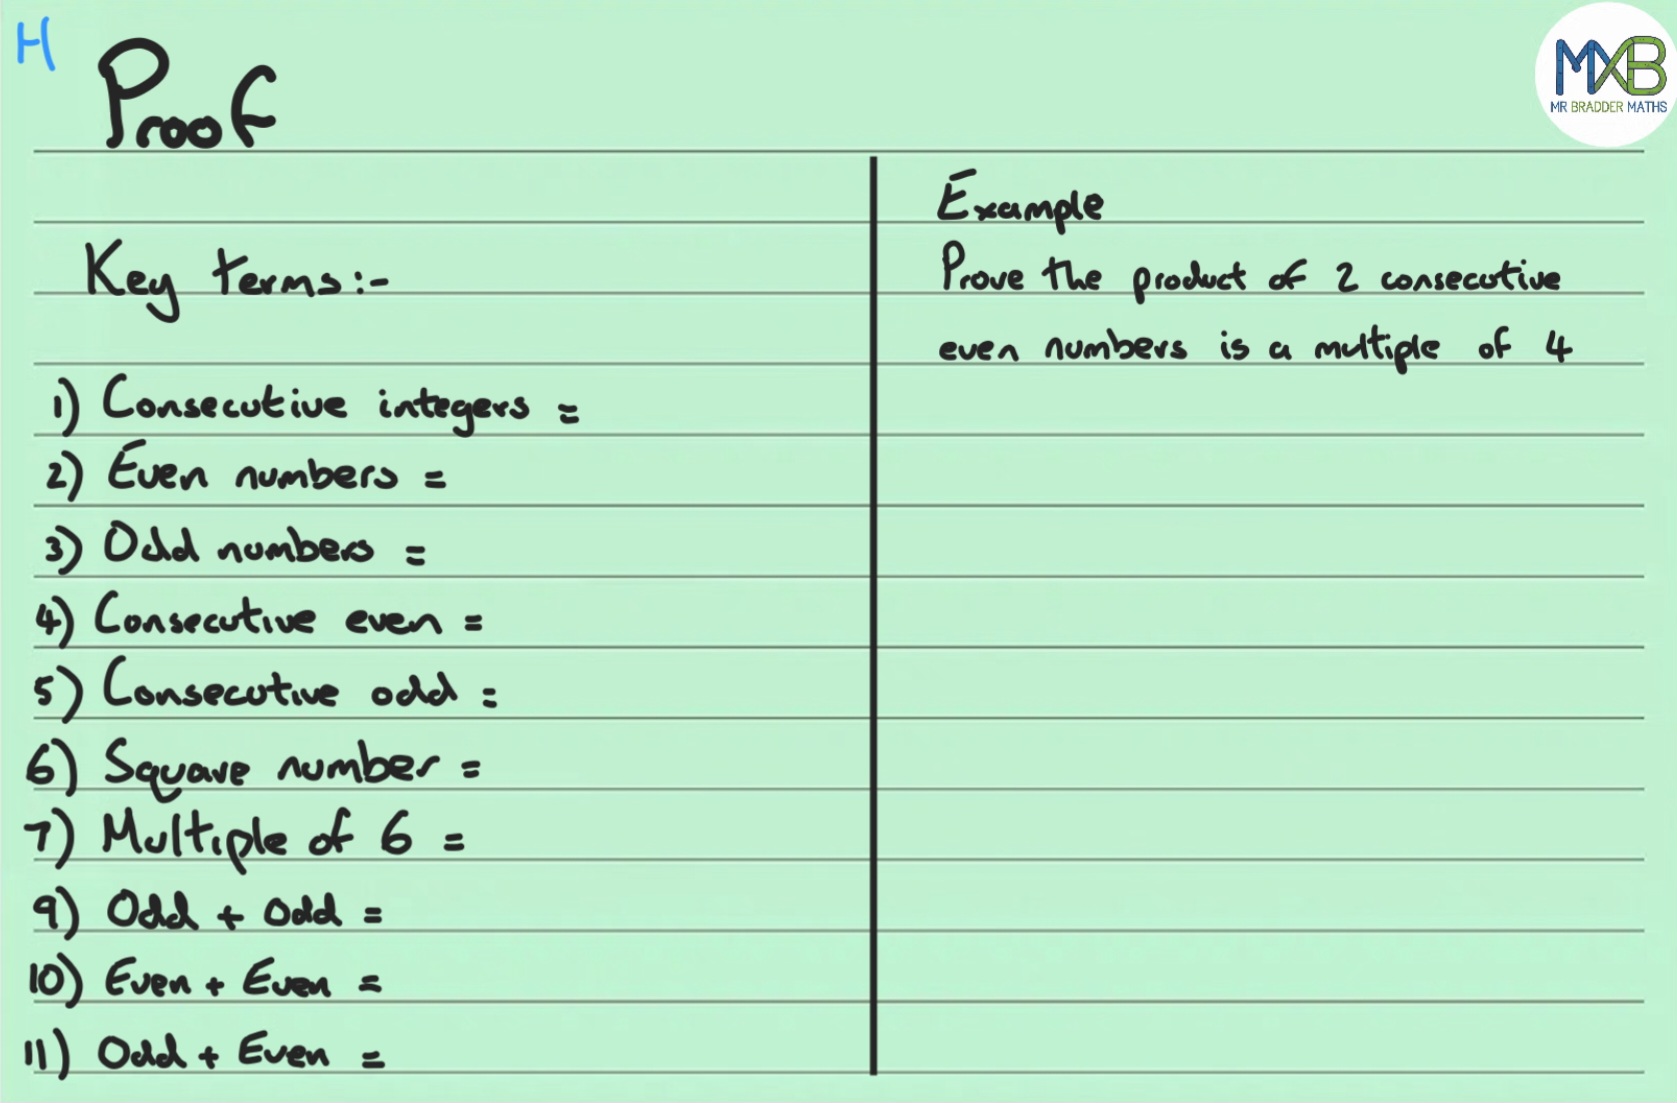 H
Proof
MXB
MR BRADDER MATHS
Key terms:-
1) Consecutive integers =
2) Even numbers =
3) Odd numbers =
4) Consecutive even =
5) Consecutive odd =
6) Square number =
7) Multiple of 6 =
9) Odd + Odd =
10) Even + Even =
11) Odd + Even =
Example
Prove the product of 2 consecutive
even numbers is a multiple of 4